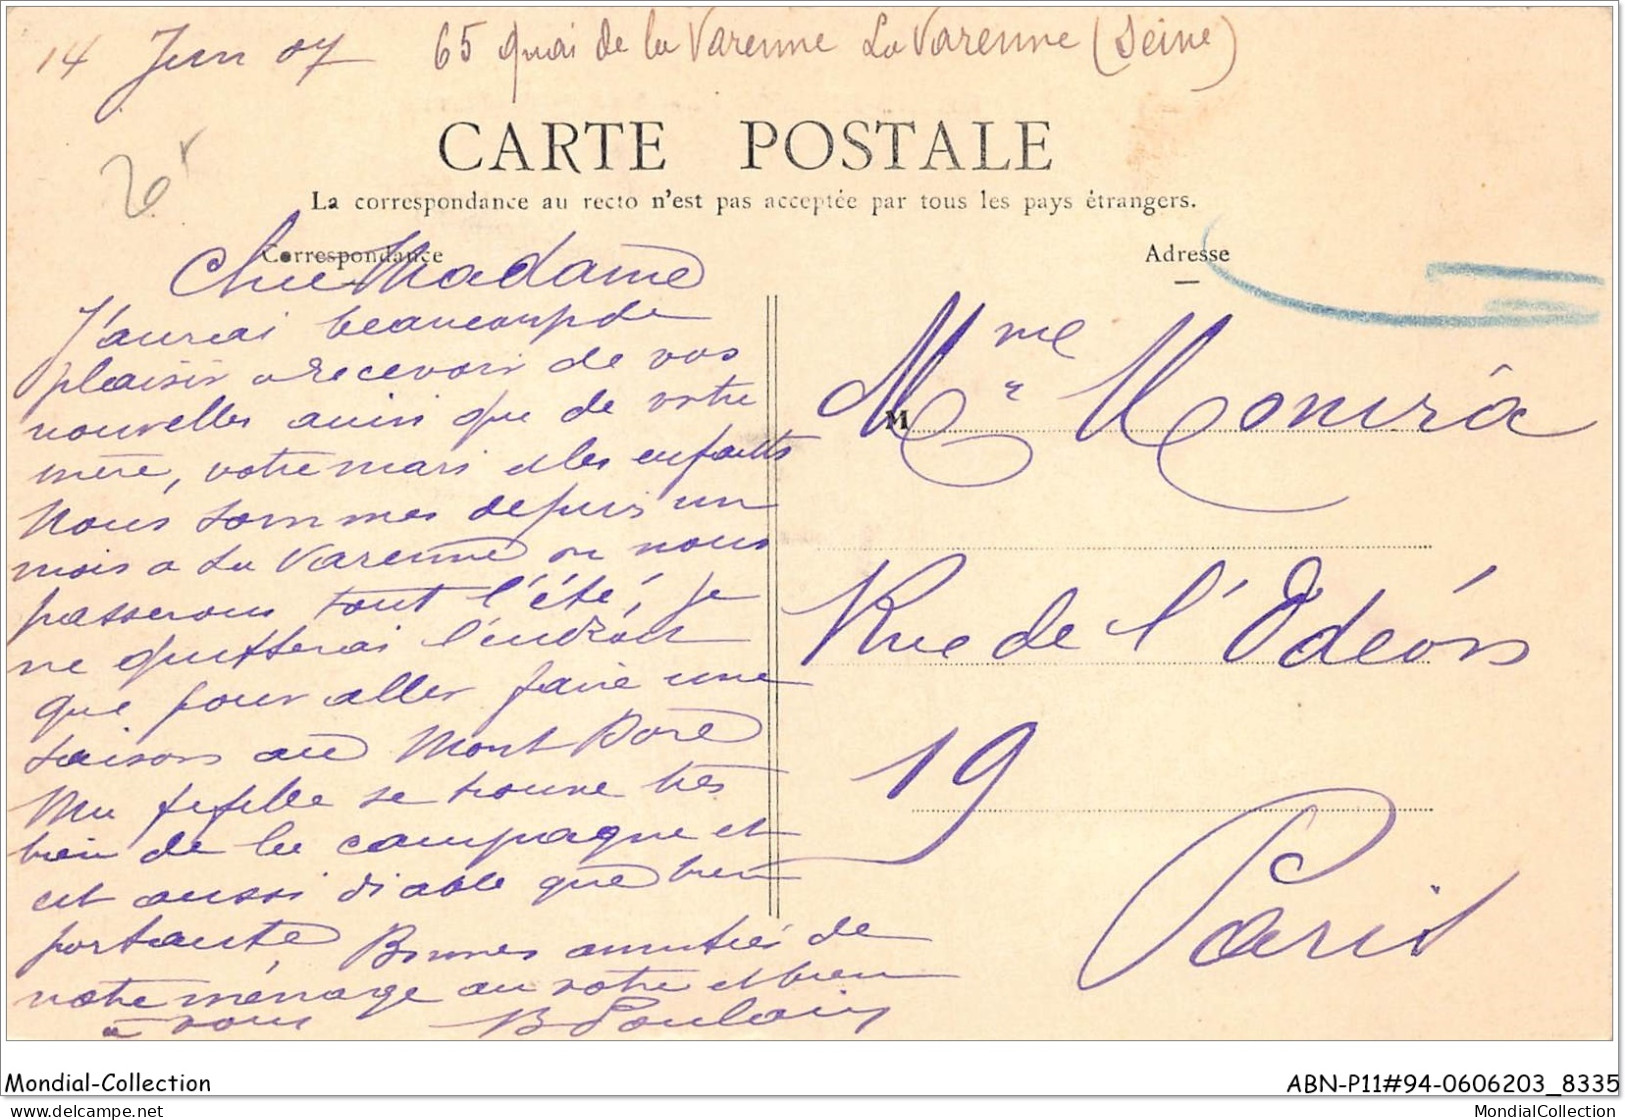 14 Juin 07 65 quai de la Varenne La Varenne (Seine)
CARTE POSTALE
La correspondance au recto n'est pas acceptée par tous les pays étrangers.
Correspondance
Adresse
Chère Madame
J'aurai beaucoup de
plaisir a recevoir de vos
nouvelles ainsi que de votre
mère, votre mari et les enfants
Nous sommes depuis un
mois a La Varenne ou nous
passerons tout l'été, je
ne quitterai l'endroit
que pour aller faire une
saison au Mont Dore
Ma fifille se trouve très
bien de la campagne et
est aussi diable que bien
portante, Bonnes amitiés de
notre ménage au votre et bien
à vous B Poulain
M
Mme
Rue de l'Odéon
19
Paris
Mondial-Collection
ABN-P11#94-0606203_8335
www.delcampe.net
MondialCollection